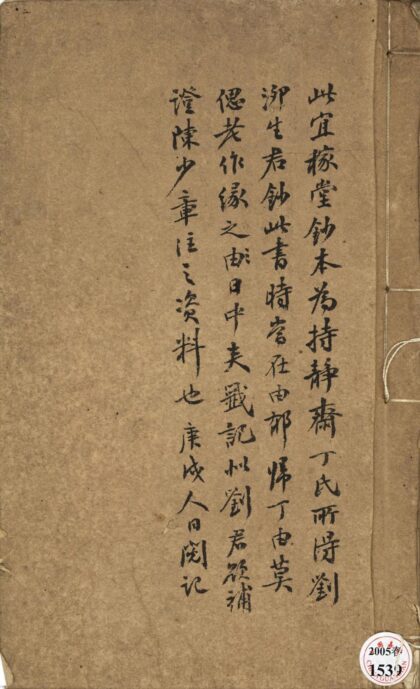 此宜稼堂鈔本為持靜齋丁氏所得劉
泖生君鈔此書時當在由郁歸丁由莫
偲老作緣之由日中夾籤記似劉君欲補
證陳少章注之資料也 庚戌人日閱記
2005春
1539